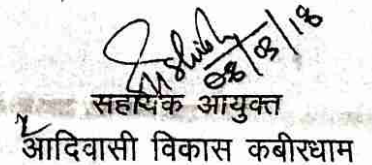 08/03/18
सहायक आयुक्त
आदिवासी विकास कबीरधाम